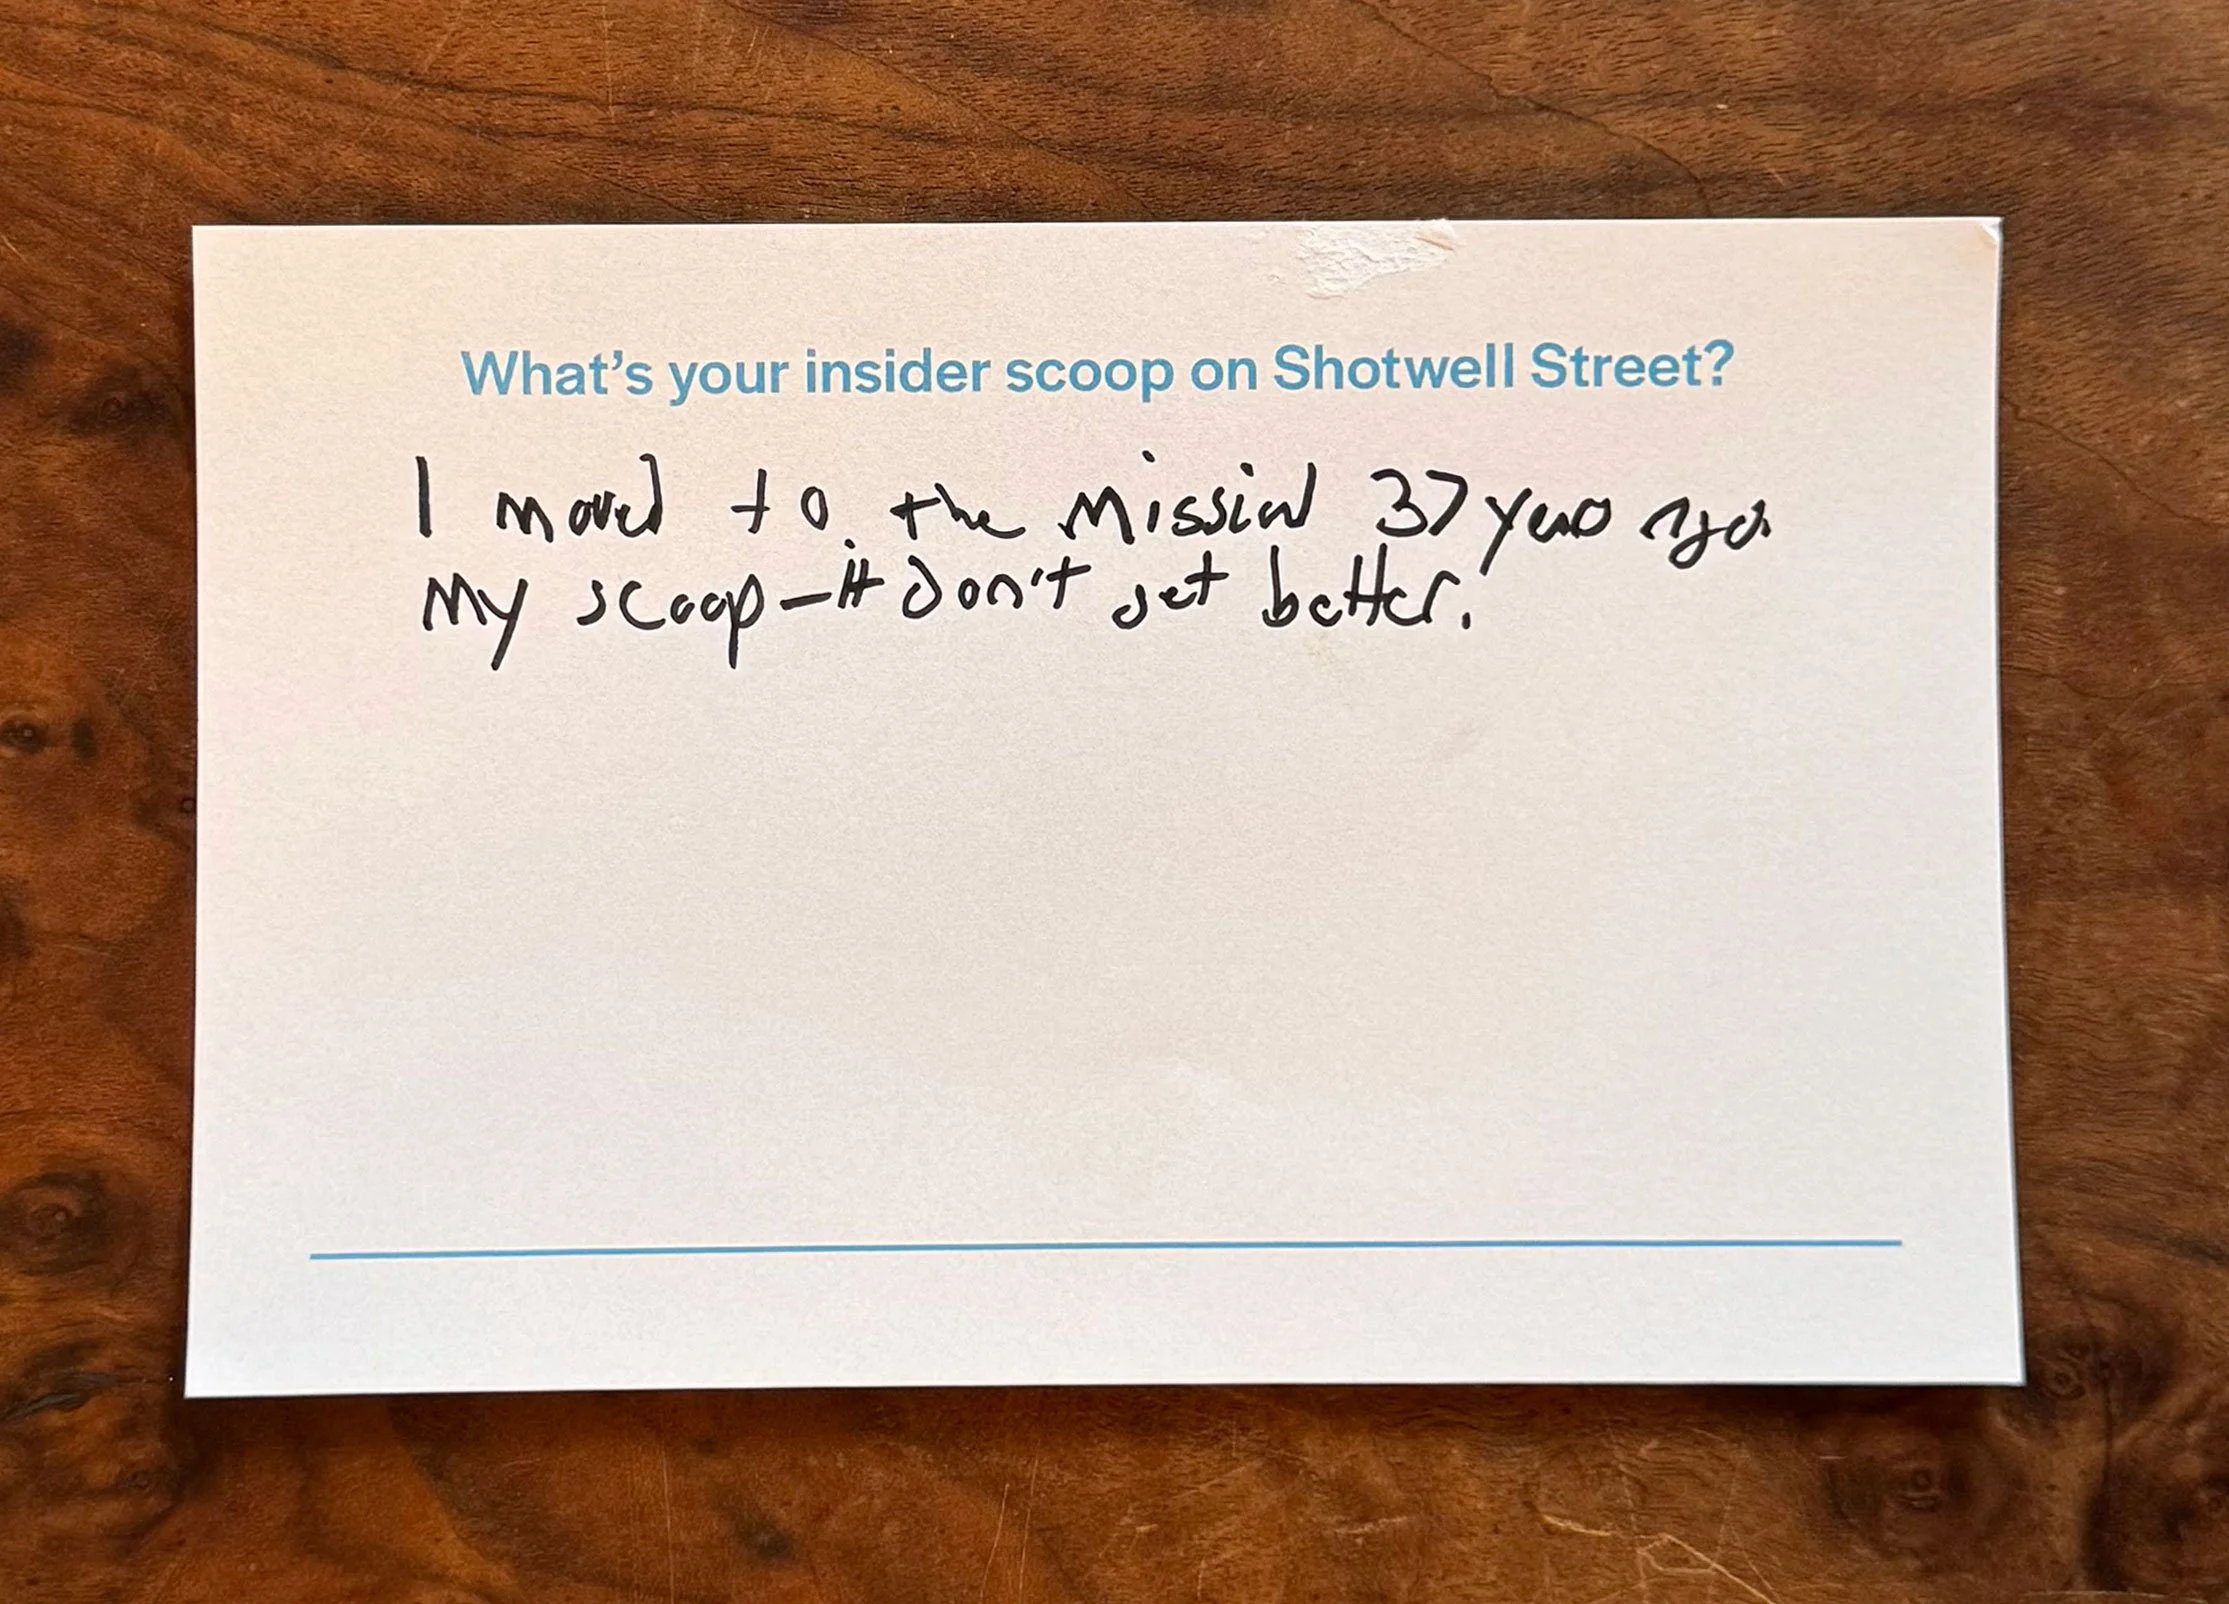 What's your insider scoop on Shotwell Street?
I moved to the Mission 37 years ago.
My scoop – it don't get better.